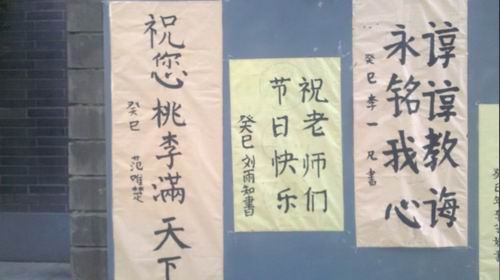 谆谆教诲
永铭我心
癸巳 李一凡書
祝老师们
节日快乐
癸巳 刘雨知書
祝您 桃李满天下
癸巳 范唯楚